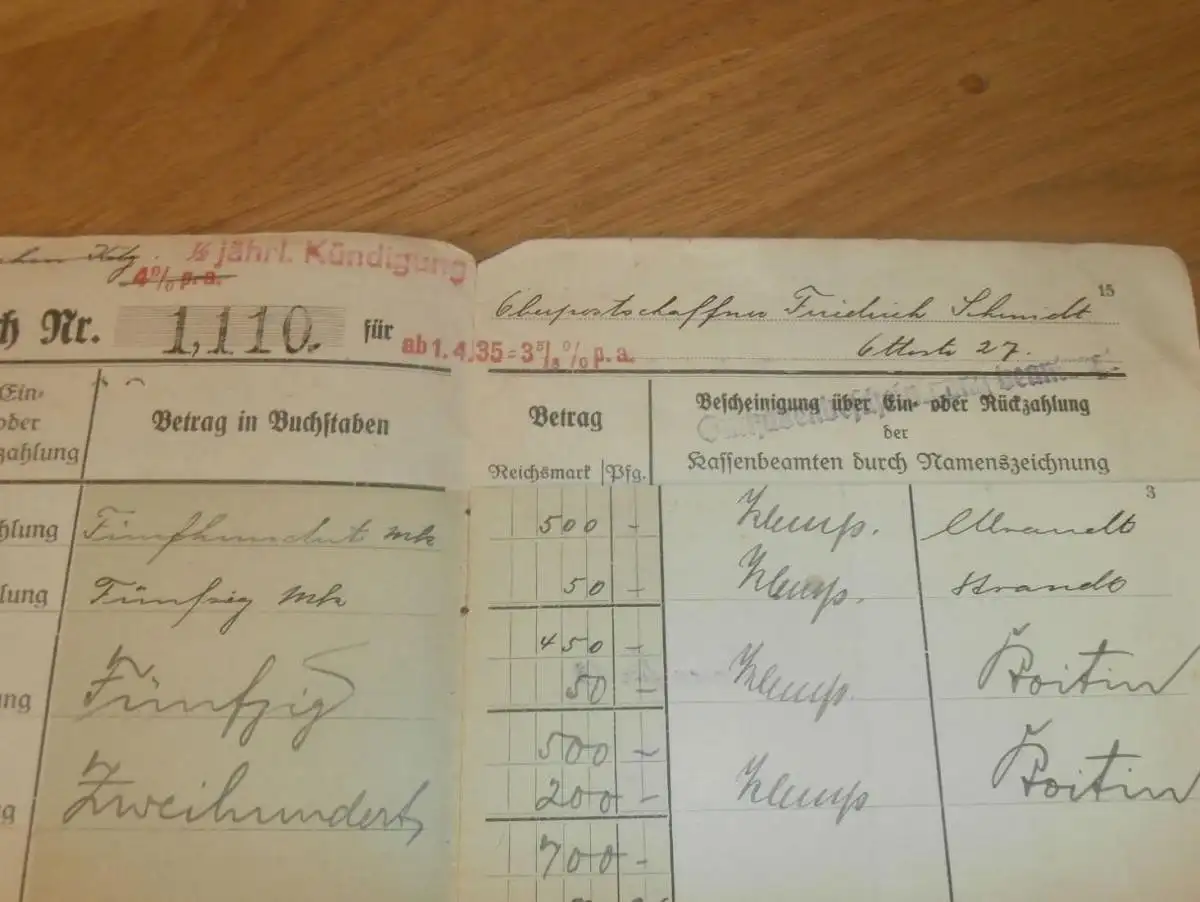 ½ jährl. Kündigung
4% p.a.
15
Oberpostschaffner Friedrich Schmidt
Nr. 1,110. für
ab 1.4.35 = 3⅝% p.a.
27.
Ein-
oder
zahlung
Betrag in Buchstaben
Betrag
Reichsmark Pfg.
Bescheinigung über Ein- oder Rückzahlung
der
Kassenbeamten durch Namenszeichnung
3
hlung Fünfhundert mk 500 -
lung Fünfzig mk 50 - Strandt
450 -
ng Fünfzig 50 - Koitin
500 -
g Zweihundert 200 - Koitin
700 -